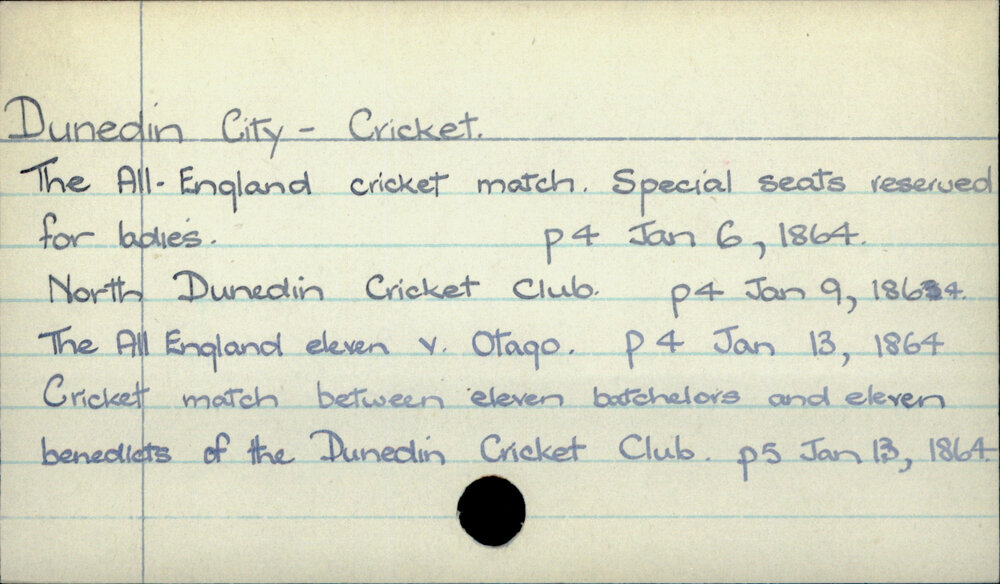 Dunedin City - Cricket.
The All-England cricket match. Special seats reserved
for ladies. p4 Jan 6, 1864.
North Dunedin Cricket Club. p4 Jan 9, 1864.
The All England eleven v. Otago. P 4 Jan 13, 1864
Cricket match between eleven batchelors and eleven
benedicts of the Dunedin Cricket Club. p5 Jan 13, 1864.